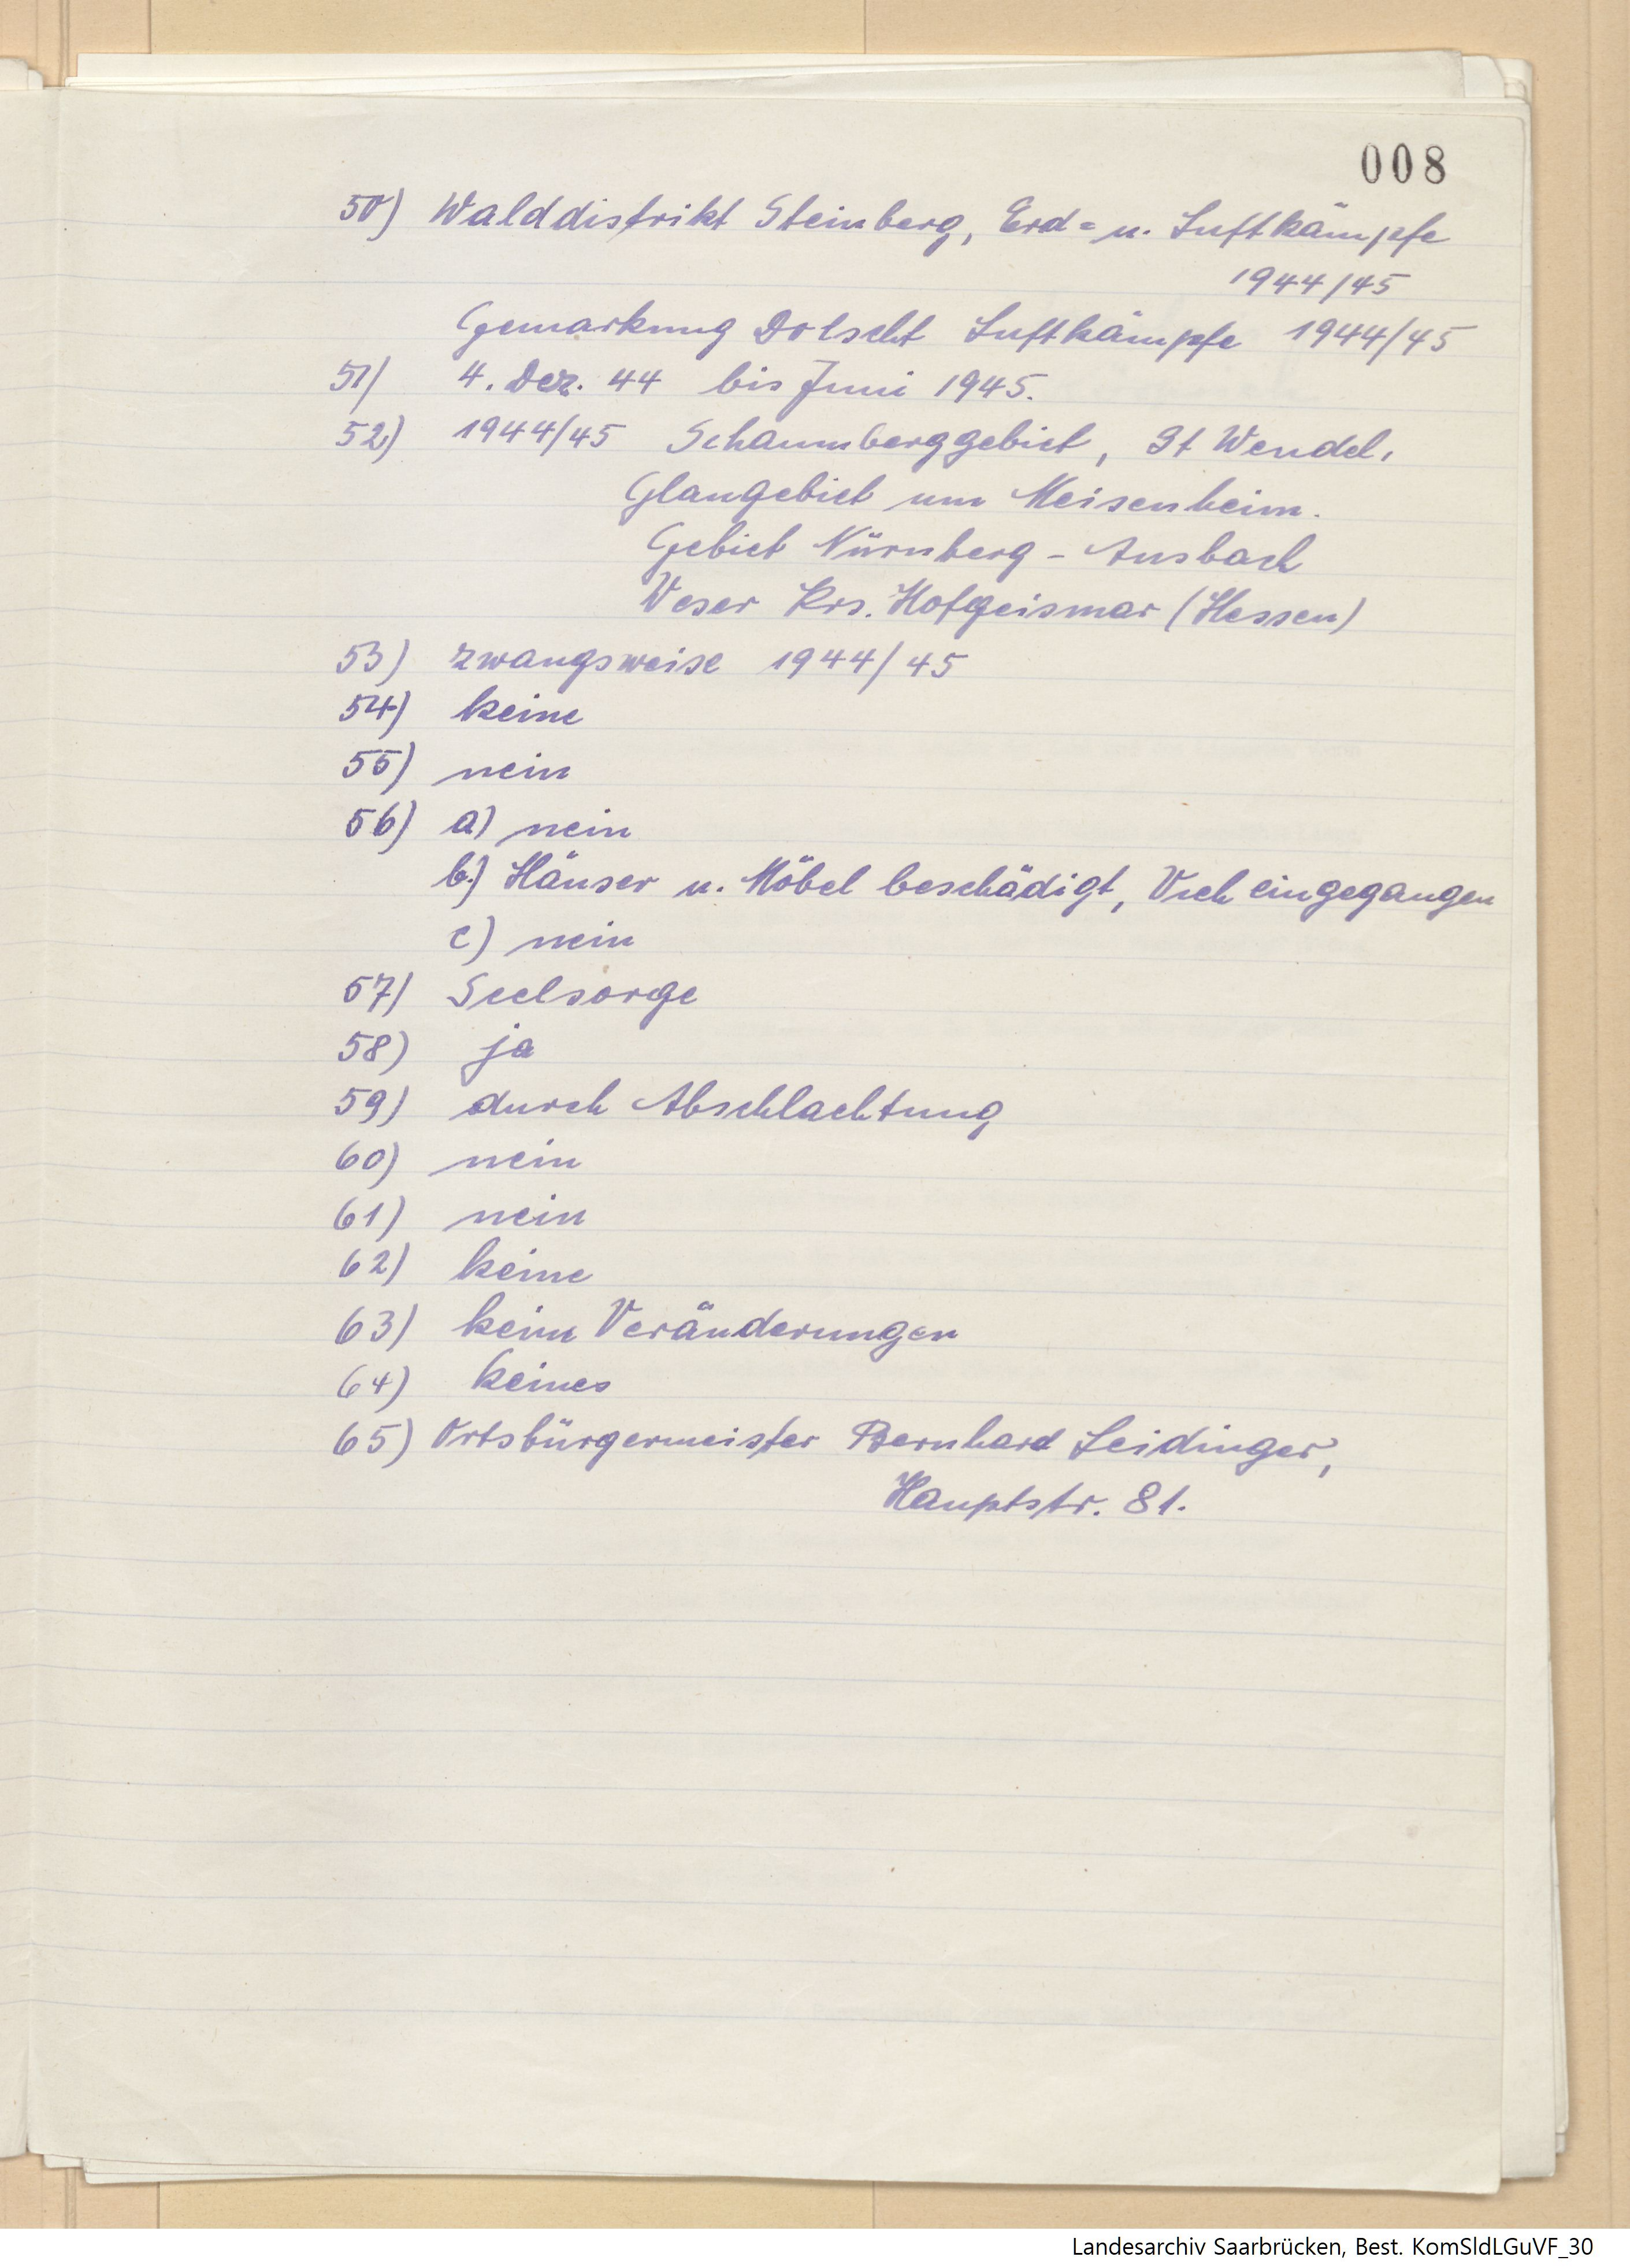 008
50) Walddistrikt Steinberg, Erd= u. Luftkämpfe
1944/45
Gemarkung Dolscht Luftkämpfe 1944/45
51) 4. Dez. 44 bis Juni 1945.
52) 1944/45 Schaumberggebiet, St Wendel,
Glangebiet um Meisenheim.
Gebiet Nürnberg - Ansbach
Weser Krs. Hofgeismar (Hessen)
53) zwangsweise 1944/45
54) keine
55) nein
56) a) nein
b.) Häuser u. Möbel beschädigt, Vieh eingegangen
c) nein
57) Seelsorge
58) ja
59) durch Abschlachtung
60) nein
61) nein
62) keine
63) keine Veränderungen
64) keines
65) Ortsbürgermeister Bernhard Leidinger,
Hauptstr. 81.
Landesarchiv Saarbrücken, Best. KomSldLGuVF_30